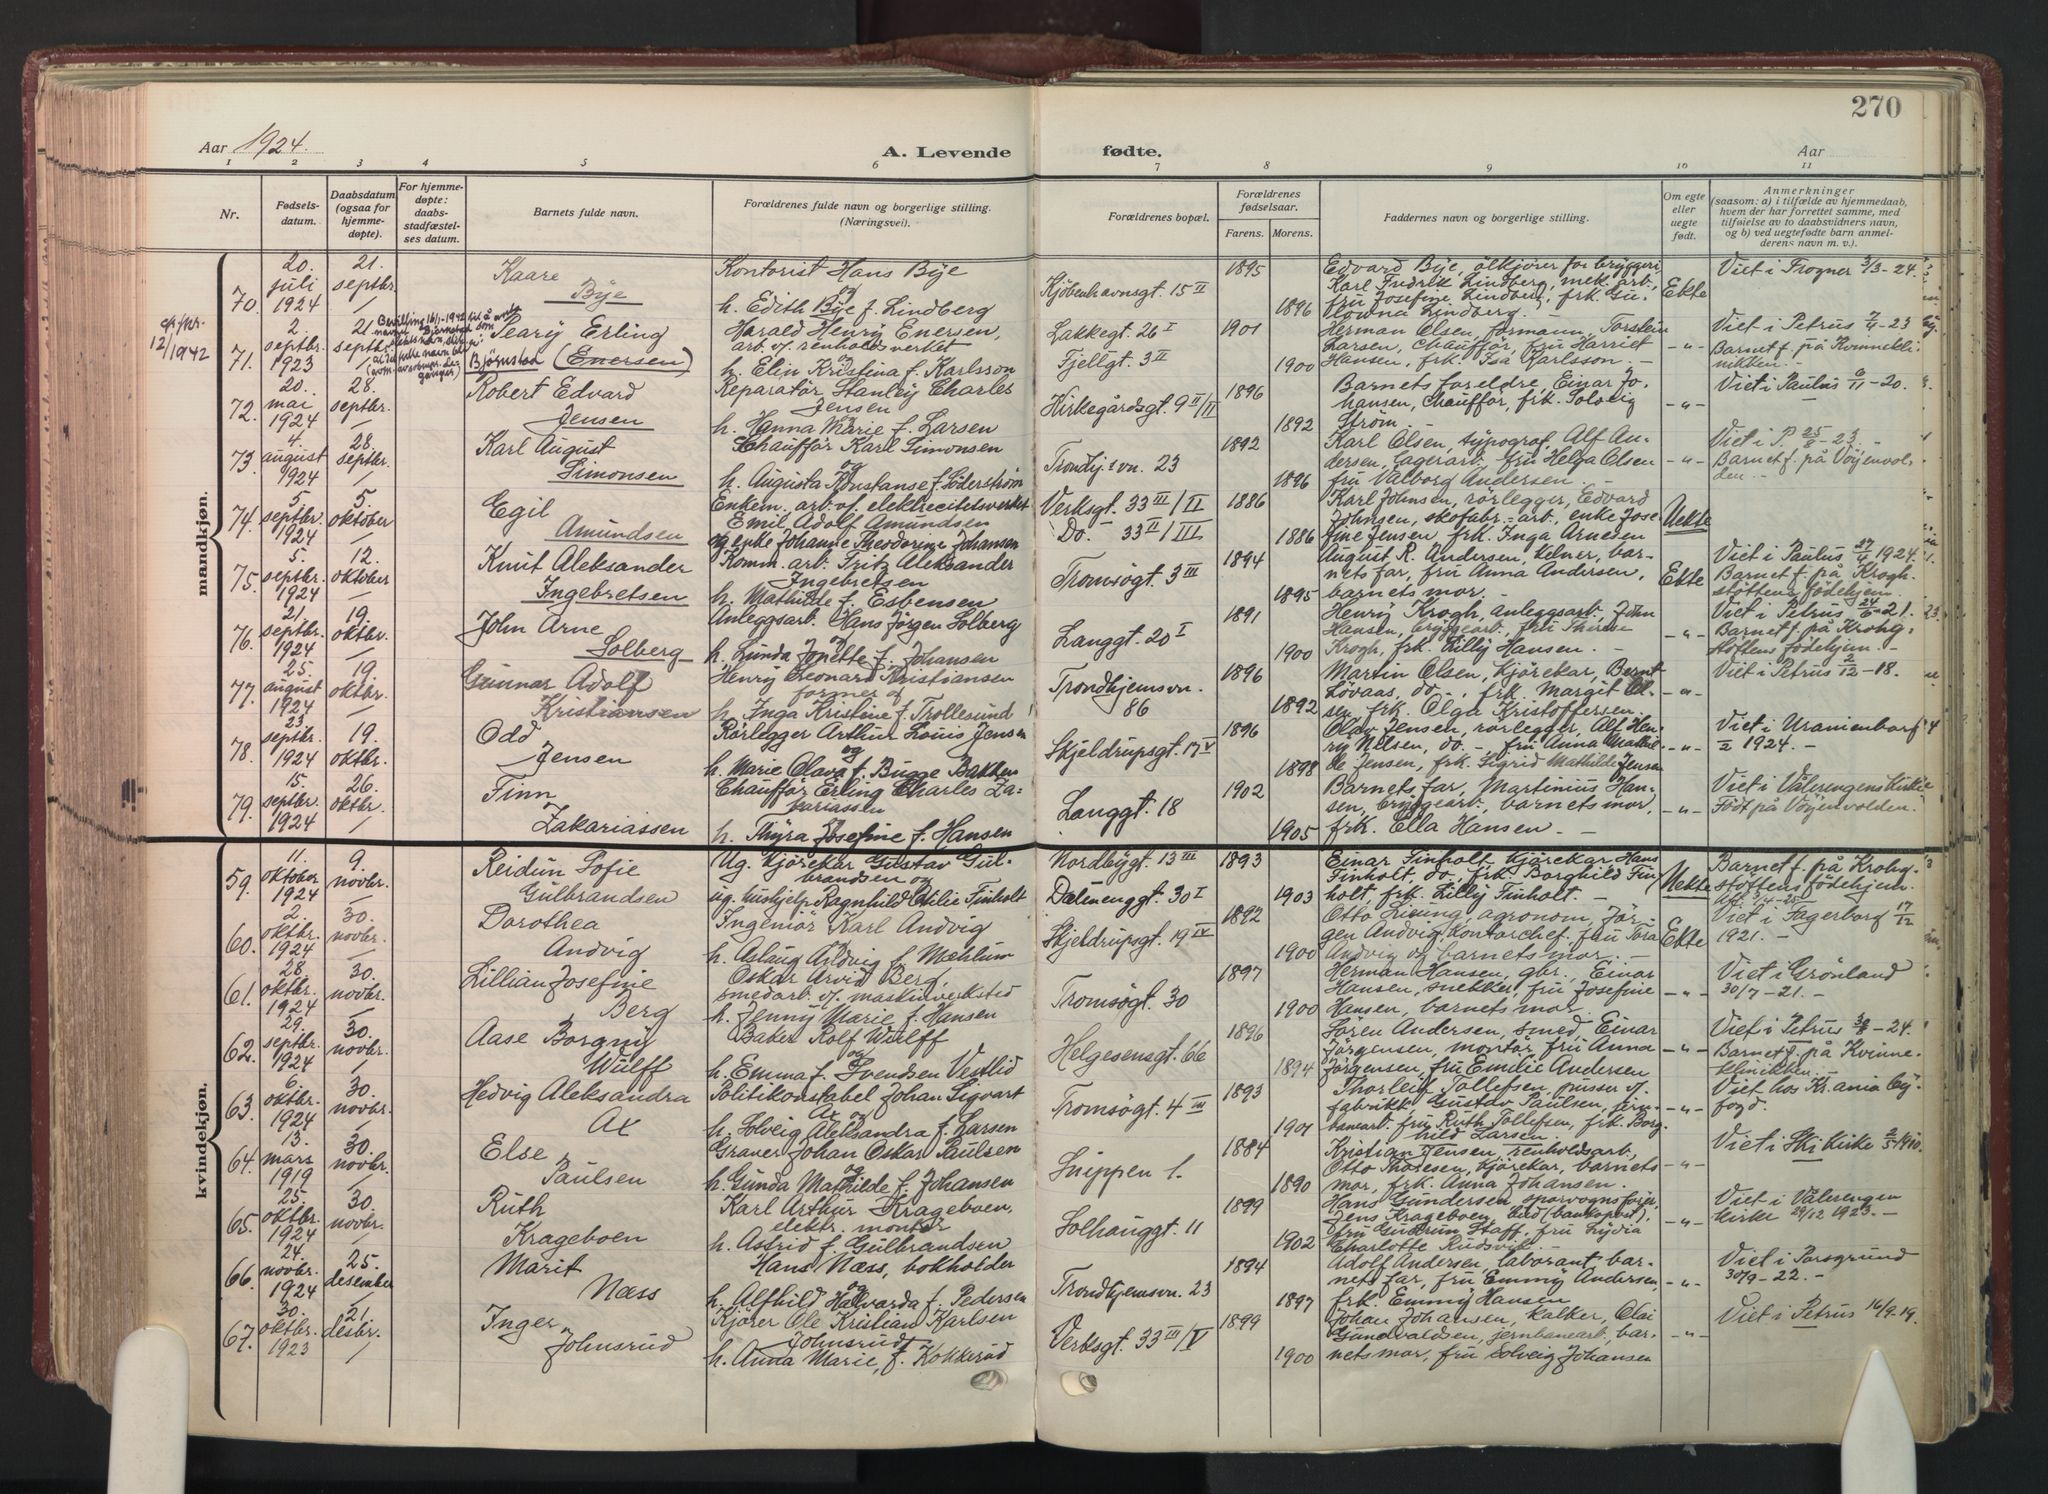 270
Aar 1924.
A. Levende fødte.
Aar
1 2 3 4 5 6 7 8 9 10 11
Nr.
Fødselsdatum.
Daabsdatum (ogsaa for hjemmedøpte).
For hjemmedøpte: daabsstadfæstelses datum.
Barnets fulde navn.
Forældrenes fulde navn og borgerlige stilling. (Næringsvei).
Forældrenes bopæl.
Forældrenes fødselsaar.
Farens. Morens.
Faddernes navn og borgerlige stilling.
Om egte eller uegte født.
Anmerkninger
(saasom: a) i tilfælde av hjemmedaab,
hvem der har forrettet samme, med
tilføielse av to daabsvidners navn,
og b) ved uegtefødte barn anmelderens navn m. v.).
mandkjøn.
70. 20. juli 1924 21. septbr. Kaare Bye
Kontorist Hans Bye og
h. Edith Bye f. Lindberg
Kjøbenhavnsgt. 15 II 1895 1896
Edvard Bye, ølkjører for bryggeri,
Karl Fredrik Lindberg, mek. arb.,
fru Josefine Lindberg, frk. Gu-
Lindberg. Ekte
Viet i Frogner 3/3-24.
12/1942
71. 2. septbr. 1923 21. septbr. Peary Erling Bjørnstad (Enersen)
Harald Henry Enersen,
arb. v. renholdsverket og
h. Elin Kristina f. Karlsson
Lakkegt. 26 I
Fjellgt. 3 II 1901 1900
Herman Olsen, formann, Torstein
Larsen, chauffør, fru Harriet
Hansen, frk. Isa Karlsson. -"-
Viet i Petrus 7/4-23
Barnet f. på Kvinnekli-
nikken.
72. 20. mai 1924 28. septbr. Robert Edvard Jensen
Reparatør Stanley Charles
Jensen
h. Hanna Marie f. Larsen
Kirkegårdsgt. 9 II/II 1896 1892
Barnets foreldre, Einar Jo-
hansen, chauffør, frk. Solveig
Strøm. -"-
Viet i Paulus 6/11-20.
73. 4. august 1924 28. septbr. Karl August Simonsen
Chauffør Karl Simonsen
og
h. Augusta Konstanse f. Söderström
Trondhj.svn. 23 1892 1896
Karl Olsen, typograf, Alf An-
dersen, lagerarb., fru Helga Olsen
fru Valborg Andersen. -"-
Viet i P. 25/8-23.
Barnet f. på Vøyenvol-
den.
74. 5. septbr. 1924 5. oktober Egil Amundsen
Enkem. arb. v. elektrecitetsverket
Emil Adolf Amundsen
og enke Johanne Theodorine Johansen
Verksgt. 33 III/II
Do. 33 II/III 1886 1886
Karl Johnsen, rørlegger, Edvard
Johnsen, skofabr.-arb., enke Jose-
fine Jensen, frk. Inga Arnesen Uekte
75. 5. septbr. 1924 12. oktober Knut Aleksander Ingebretsen
Komm. arb. Fritz Aleksander
Ingebretsen
h. Mathilde f. Esbensen
Tromsøgt. 3 III 1894 1895
August R. Andersen, kelner, bar-
nets far, fru Anna Andersen,
barnets mor. Ekte
Viet i Paulus 27/4 1924.
Barnet f. på Krogh-
støttens fødehjem.
76. 21. septbr. 1924 19. oktbr. John Arne Solberg
Anleggsarb. Hans Jørgen Solberg
og
h. Lunda Jonette f. Johansen
Langgt. 20 I 1891 1900
Henry Krogh, anleggsarb., John
Hansen, bryggearb., fru Therese
Krogh, frk. Lilly Hansen. -"-
Viet i Petrus 24/6-21.
Barnet f. på Krohg-
støttens fødehjem.
77. 25. august 1924 19. oktbr. Gunnar Adolf Kristiansen
Henry Leonard Kristiansen
former og
h. Inga Kristine f. Trollesund
Trondhjemsvn. 86 1896 1892
Martin Olsen, kjørekar, Bernt
Løvaas, do., frk. Margit Ol-
sen, frk. Olga Kristoffersen. -"-
Viet i Petrus 2/12-18.
78. 23. septbr. 1924 19. oktbr. Odd Jensen
Rørlegger Arthur Louis Jensen
og
h. Marie Olava f. Bugge Bakken
Skjeldrupsgt. 17 V 1896 1898
Olav Jensen, rørlegger, Alf Hen-
ry Nilsen, do., fru Anna Mathil-
de Jensen, frk. Sigrid Mathilde Jensen -"-
Viet i Uranienborg
1924.
79. 15. septbr. 1924 26. oktbr. Finn Zakariassen
Chauffør Erling Charles Za-
kariassen
h. Thyra Josefine f. Hansen
Langgt. 18 1902 1905
Barnets far, Martinius Han-
sen, bryggearb., barnets mor,
frk. Ella Hansen. -"-
Viet i Vålerengens kirke
Født på Vøyenvolden.
kvindekjøn.
59. 11. oktober 1924 9. novbr. Reidun Sofie Gulbrandsen
Ug. kjørekar Gustav Gul-
brandsen og
ug. hushjelp Ragnhild Otilie Finholt
Nordbygt. 13 III
Dalenenggt. 30 I 1893 1903
Einar Finholt, kjørekar, Hans
Finholt, do., frk. Borghild Fin-
holt, frk. Lilly Finholt. Uekte
Barnet f. på Krohg-
støttens fødehjem.
60. 2. oktbr. 1924 30. novbr. Dorothea Andvig
Ingeniør Karl Andvig
og
h. Aslaug Andvig f. Mæhlum
Skjeldrupsgt. 19 IV 1892 1900
Otto Liung, agronom, Jør-
gen Andvig, kontorchef, fru Tora
Andvig og barnets mor. Ekte
Viet i Fagerborg 17/12
1921.
61. 28. oktbr. 1924 30. novbr. Lillian Josefine Berg
Oskar Arvid Berg,
smedarb. v. maskinverksted
h. Jenny Marie f. Hansen
Tromsøgt. 30 1897 1900
Herman Hansen, gbr., Einar
Hansen, snekker, fru Josefine
Hansen, barnets mor. -"-
Viet i Grønland
30/7-21.
62. 29. septbr. 1924 30. novbr. Aase Borgny Wulff
Baker Rolf Wulff
og
h. Emma f. Svendsen Vestlid
Helgesensgt. 66 1896 1894
Søren Andersen, smed, Einar
Jørgensen, montør, fru Anna
Jørgensen, fru Emilie Andersen -"-
Viet i Petrus 30/8-24.
Barnet f. på Kvinne-
klinikken.
63. 6. oktbr. 1924 30. novbr. Hedvig Aleksandra Ax
Politikonstabel Johan Sigvart
Ax og
h. Solveig Aleksandra f. Larsen
Tromsøgt. 4 III 1893 1901
Thorleif Tollefsen, pusser v.
fabrikk, Gustav Paulsen, jern-
banearb., fru Ruth Tollefsen, frk. Borg-
hild Larsen. -"-
Viet hos Kr.ania by-
fogd.
64. 13. mars 1919 30. novbr. Else Paulsen
Graver Johan Oskar Paulsen
og
h. Gunda Mathilde f. Johansen
Snippen 1. 1884 1890
Kristian Jensen, renholdsarb.,
Otto Thoresen, kjørekar, barnets
mor, frk. Anna Johansen. -"-
Viet i Ski kirke 2/5 1910.
65. 25. oktbr. 1924 30. novbr. Ruth Krageboen
Karl Arthur Krageboen,
elektr. montør
h. Astrid f. Gulbrandsen
Solhauggt. 11 1899 1902
Hans Gundersen, sporvognsfører,
Jens Krageboen, bud (bankopost),
fru Gudrun Staff, fru Lydia
Charlotte Rudsvik. -"-
Viet i Vålerengen
kirke 29/12 1923.
66. 24. novbr. 1924 25. desember Marit Næss
Hans Næss, bokholder
og
h. Alfhild Halvarda f. Pedersen
Trondhjemsvn. 23 1894 1897
Adolf Andersen, laborant, bar-
nets far, fru Emmy Andersen,
frk. Emmy Hansen -"-
Viet i Porsgrund
30/9-22.
67. 30. oktbr. 1923 21. desbr. Inger Johnsrud
Kjører Ole Kristian Karlsen
Johnsrud
h. Anna Marie f. Kokkerud
Verksgt. 33 III/V 1899 1900
Johan Johansen, kalker, Olai
Gundvaldsen, jernbanearb., bar-
nets mor, fru Solveig Johansen -"-
Viet i Petrus 16/9-19.